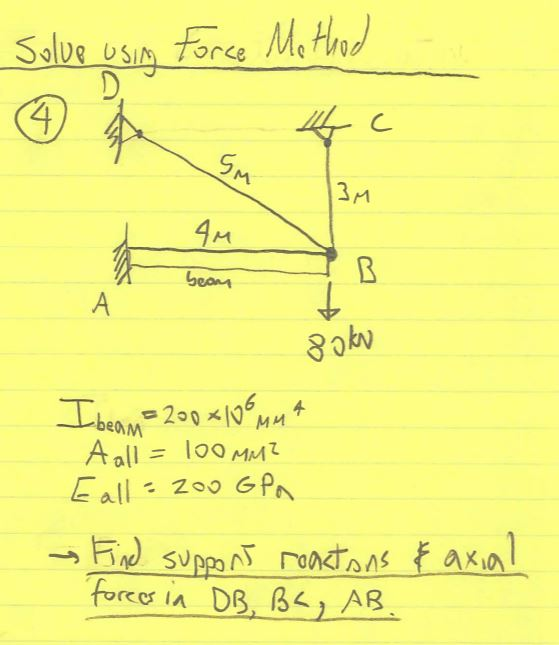 Solve using Force Method
D
④
C
5M
3M
4M
beam
B
A
80kN
I beam = 200×10⁶ MM⁴
A all = 100 MM²
E all = 200 GPa
→ Find support reactions & axial
forces in DB, BC, AB.